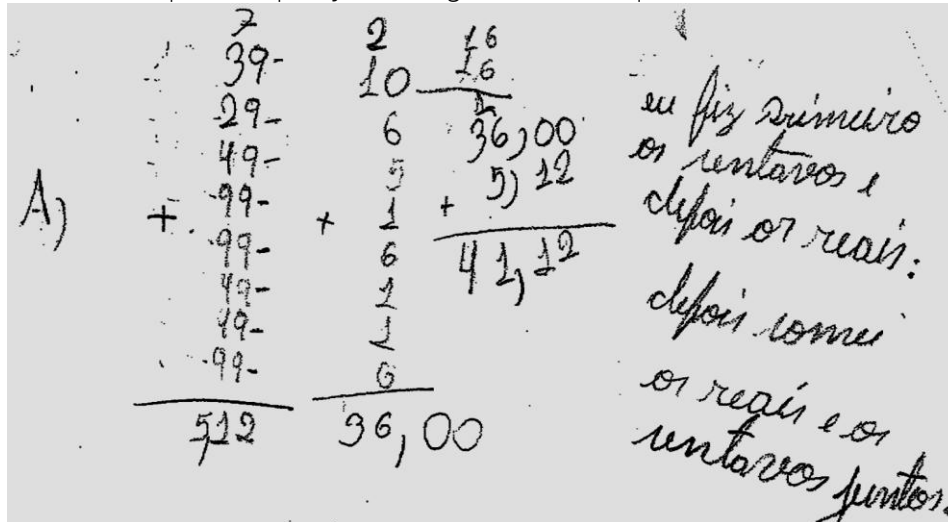 A)
7
39-
29-
49-
+ 99-
99-
49-
49-
99-
5,12
2
10
6
5
+ 1
6
1
1
6
36,00
16
16
1
36,00
+ 5,12
41,12
eu fiz primeiro
os centavos e
depois os reais:
depois somei
os reais e os
centavos juntos.